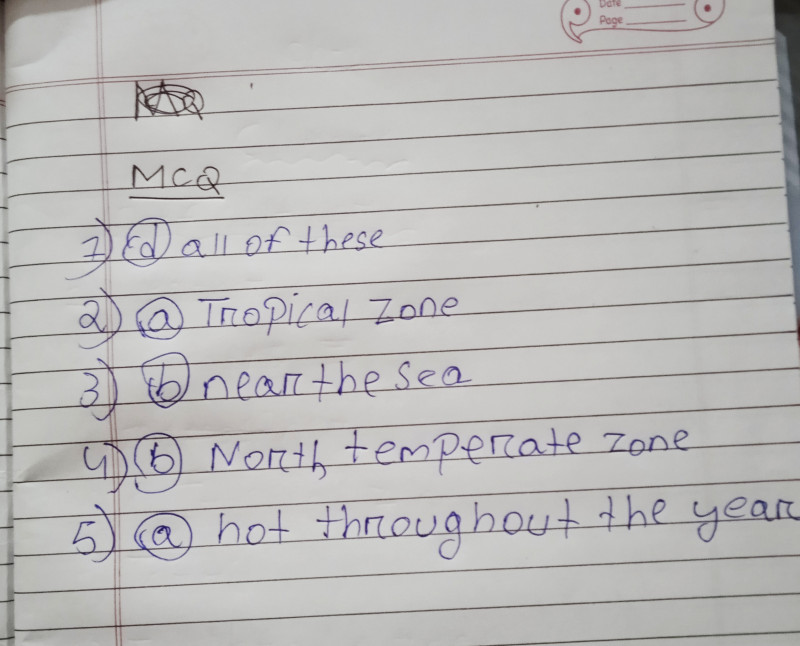 Date
Page
MCQ
1) (d) all of these
2) (a) Tropical zone
3) (b) near the sea
4) (b) North temperate zone
5) (a) hot throughout the year